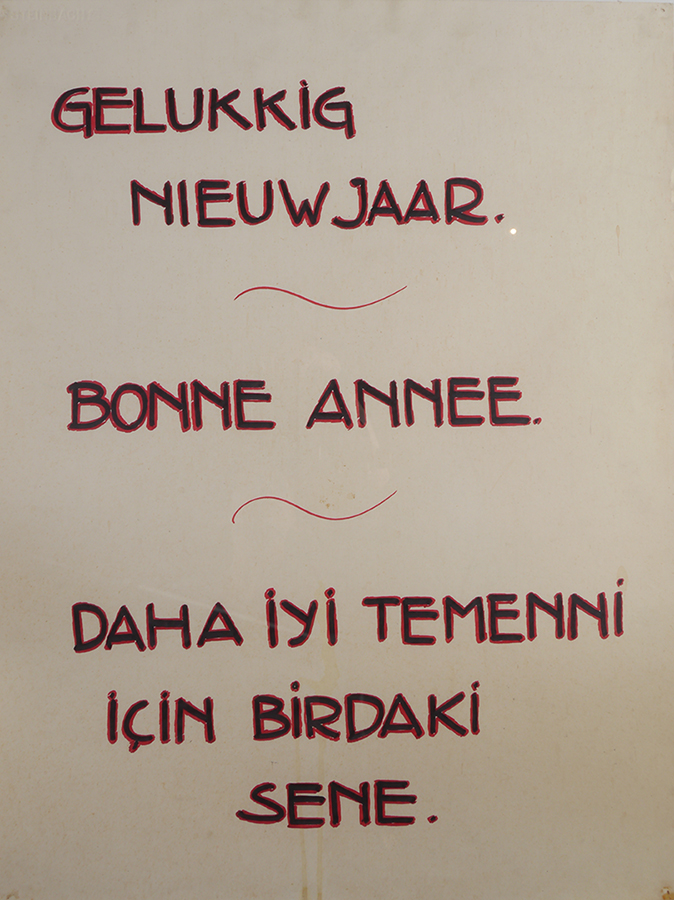 GELUKKİG
NIEUWJAAR.
BONNE ANNEE.
DAHA İYİ TEMENNİ
İÇİN BİRDAKİ
SENE.